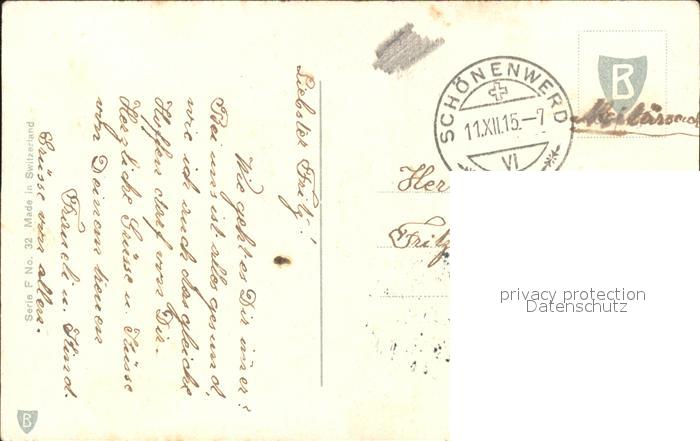 Liebster Fritz!
Wie geht es Dir immer?
Bei uns ist alles gesund,
wie ich auch das gleiche
Hoffen darf von Dir.
Herzliche Grüsse u. Küsse
von Deinem treuen
Fraueli u. Kind.
Grüsse von allen.
Serie F No. 32 Made in Switzerland
B
SCHÖNENWERD
11.XII.15.–7
VI
B
Her
Fritz
privacy protection
Datenschutz